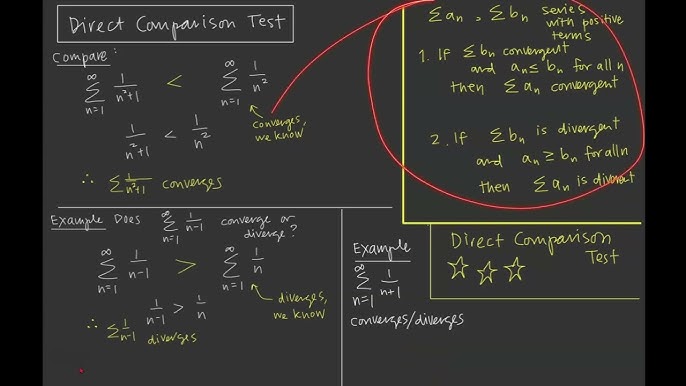 Direct Comparison Test
Compare:
∞ ∑ n=1 1/(n²+1) < ∞ ∑ n=1 1/n²
1/(n²+1) < 1/n²
converges,
we know
∴ ∑ 1/(n²+1) converges
∑ aₙ, ∑ bₙ series
with positive
terms
1. If ∑ bₙ convergent
and aₙ ≤ bₙ for all n
then ∑ aₙ convergent
2. If ∑ bₙ is divergent
and aₙ ≥ bₙ for all n
then ∑ aₙ is divergent
Direct Comparison
Test
Example Does ∞ ∑ n=1 1/(n-1) converge or
diverge?
∞ ∑ n=1 1/(n-1) > ∞ ∑ n=1 1/n
1/(n-1) > 1/n
diverges,
we know
∴ ∑ 1/(n-1) diverges
Example
∞ ∑ n=1 1/(n+1)
converges/diverges